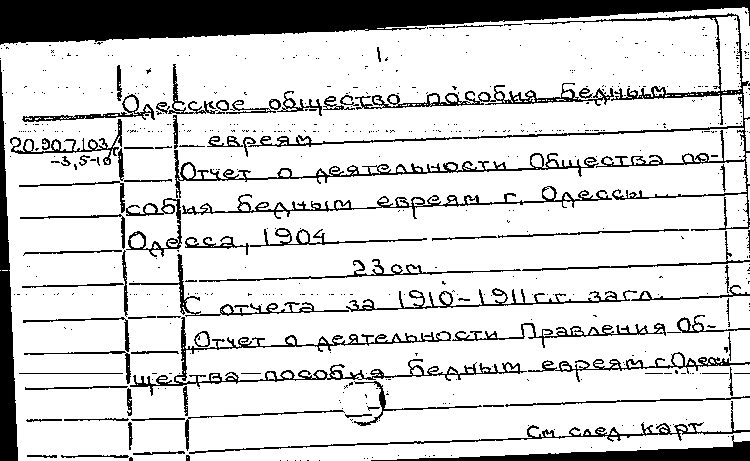 1.
Одесское общество пособия бедным
20.90.7.103/
-3,5-10
евреям
Отчет о деятельности Общества по-
собия бедным евреям г. Одессы.
Одесса, 1904
23 см.
С отчета за 1910-1911 г.г. загл. с.
„Отчет о деятельности Правления Об-
щества пособия бедным евреям г. Одессы"
См. след. карт